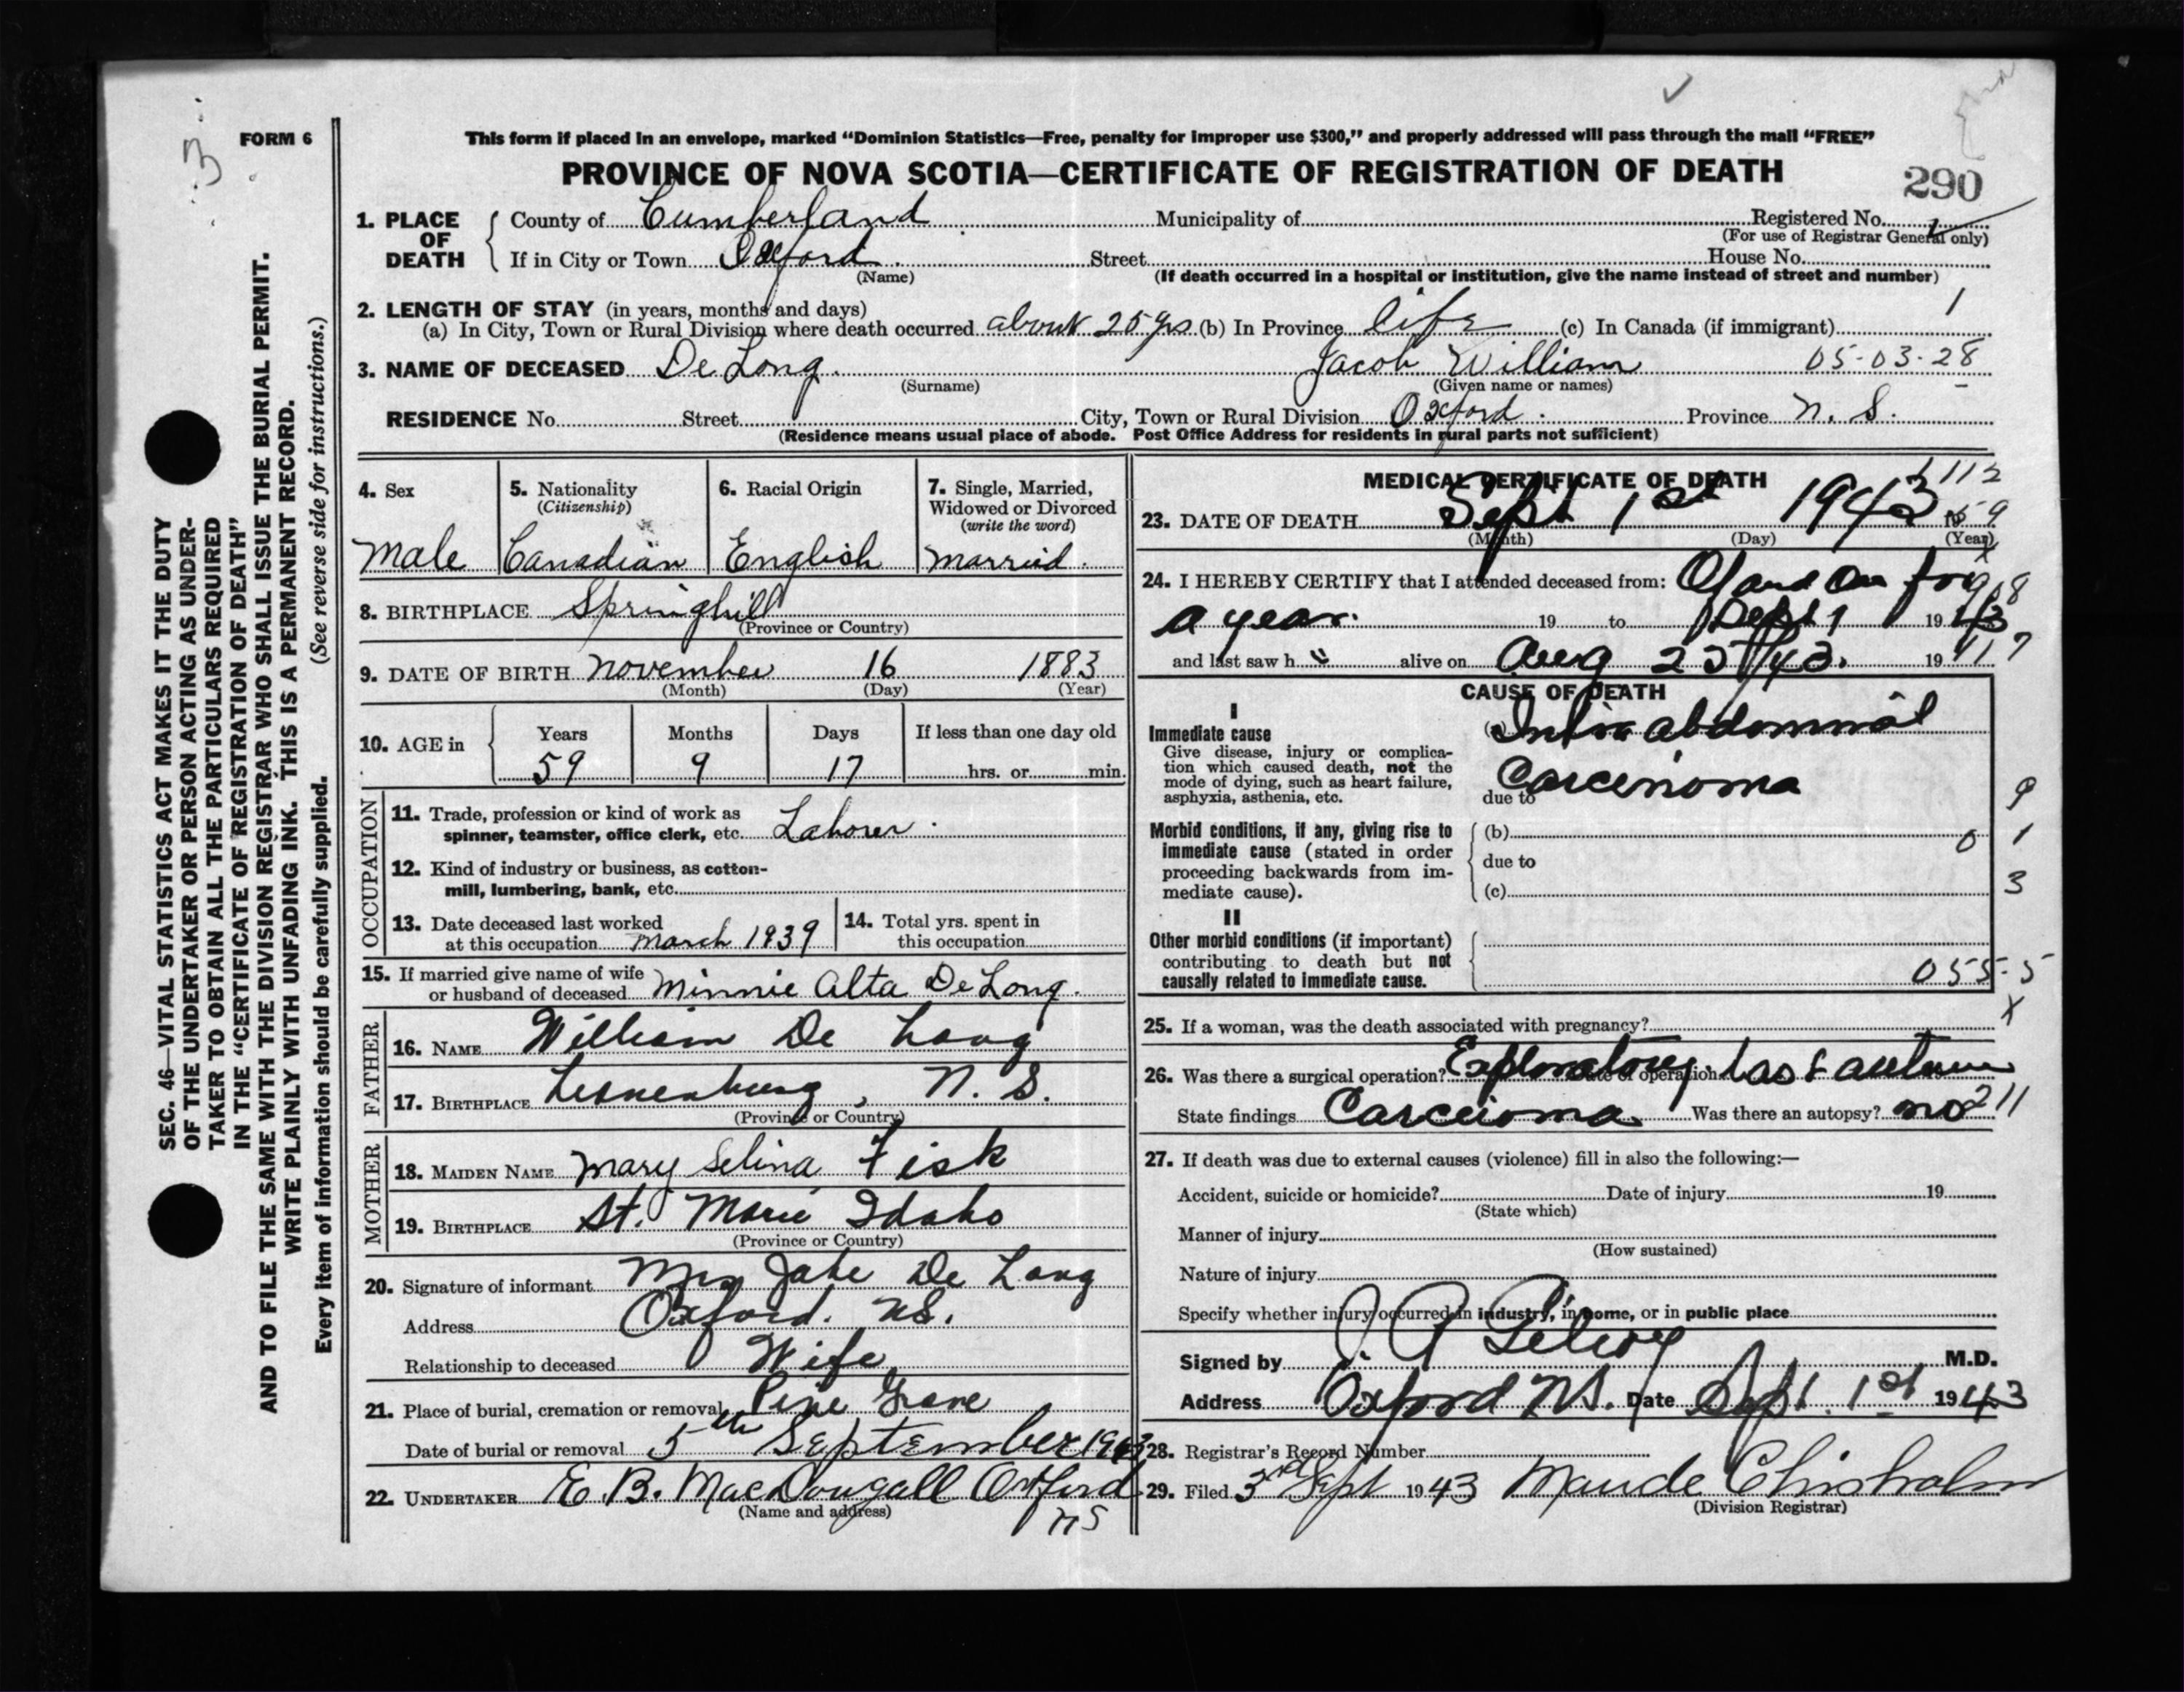 FORM 6
This form if placed in an envelope, marked “Dominion Statistics—Free, penalty for improper use $300,” and properly addressed will pass through the mail “FREE”
PROVINCE OF NOVA SCOTIA—CERTIFICATE OF REGISTRATION OF DEATH
290
1. PLACE OF DEATH County of Cumberland Municipality of Registered No.
(For use of Registrar General only)
If in City or Town Oxford Street House No.
(Name) (If death occurred in a hospital or institution, give the name instead of street and number)
2. LENGTH OF STAY (in years, months and days)
(a) In City, Town or Rural Division where death occurred about 25 yrs (b) In Province life (c) In Canada (if immigrant) 1
3. NAME OF DECEASED De Long. Jacob William 05-03-28
(Surname) (Given name or names)
RESIDENCE No. Street City, Town or Rural Division Oxford. Province N. S.
(Residence means usual place of abode. Post Office Address for residents in rural parts not sufficient)
4. Sex
Male
5. Nationality
(Citizenship)
Canadian
6. Racial Origin
English
7. Single, Married,
Widowed or Divorced
(write the word)
Married.
8. BIRTHPLACE Springhill
(Province or Country)
9. DATE OF BIRTH November 16 1883
(Month) (Day) (Year)
10. AGE in Years Months Days If less than one day old
59 9 17 hrs. or min.
OCCUPATION
11. Trade, profession or kind of work as
spinner, teamster, office clerk, etc. Laborer.
12. Kind of industry or business, as cotton-
mill, lumbering, bank, etc.
13. Date deceased last worked
at this occupation March 1939
14. Total yrs. spent in
this occupation
15. If married give name of wife
or husband of deceased Minnie Alta De Long.
FATHER
16. NAME William De Long
17. BIRTHPLACE Lunenburg, N. S.
(Province or Country)
MOTHER
18. MAIDEN NAME Mary Selina Fisk
19. BIRTHPLACE St. Marie Idaho
(Province or Country)
20. Signature of informant Mrs Jake De Long
Address Oxford. N.S.
Relationship to deceased Wife
21. Place of burial, cremation or removal Pine Grove
Date of burial or removal 5th September 1943
22. UNDERTAKER E. B. MacDougall Oxford
(Name and address) NS
MEDICAL CERTIFICATE OF DEATH
23. DATE OF DEATH Sept 1st 1943
(Month) (Day) (Year)
24. I HEREBY CERTIFY that I attended deceased from: Off and on for
a year. 19 to Sept 1 1943
and last saw h alive on Aug 25/43. 19
CAUSE OF DEATH
I
Immediate cause
Give disease, injury or complica-
tion which caused death, not the
mode of dying, such as heart failure,
asphyxia, asthenia, etc.
(a) Intra abdominal
Carcenoma
due to
Morbid conditions, if any, giving rise to
immediate cause (stated in order
proceeding backwards from im-
mediate cause).
(b) 0
due to
(c)
9
1
3
II
Other morbid conditions (if important)
contributing to death but not
causally related to immediate cause.
055-5
25. If a woman, was the death associated with pregnancy?
26. Was there a surgical operation? Exploratory Date of operation last autumn
State findings Carceioma Was there an autopsy? no 211
27. If death was due to external causes (violence) fill in also the following:—
Accident, suicide or homicide? Date of injury 19
(State which)
Manner of injury
(How sustained)
Nature of injury
Specify whether injury occurred in industry, in home, or in public place
Signed by M.D.
Address Oxford NS. Date Sept. 1st 1943
28. Registrar's Record Number
29. Filed 3rd Sept 1943 Maude Chisholm
(Division Registrar)
SEC. 46—VITAL STATISTICS ACT MAKES IT THE DUTY
OF THE UNDERTAKER OR PERSON ACTING AS UNDER-
TAKER TO OBTAIN ALL THE PARTICULARS REQUIRED
IN THE “CERTIFICATE OF REGISTRATION OF DEATH”
AND TO FILE THE SAME WITH THE DIVISION REGISTRAR WHO SHALL ISSUE THE BURIAL PERMIT.
WRITE PLAINLY WITH UNFADING INK. THIS IS A PERMANENT RECORD.
Every item of information should be carefully supplied. (See reverse side for instructions.)
3